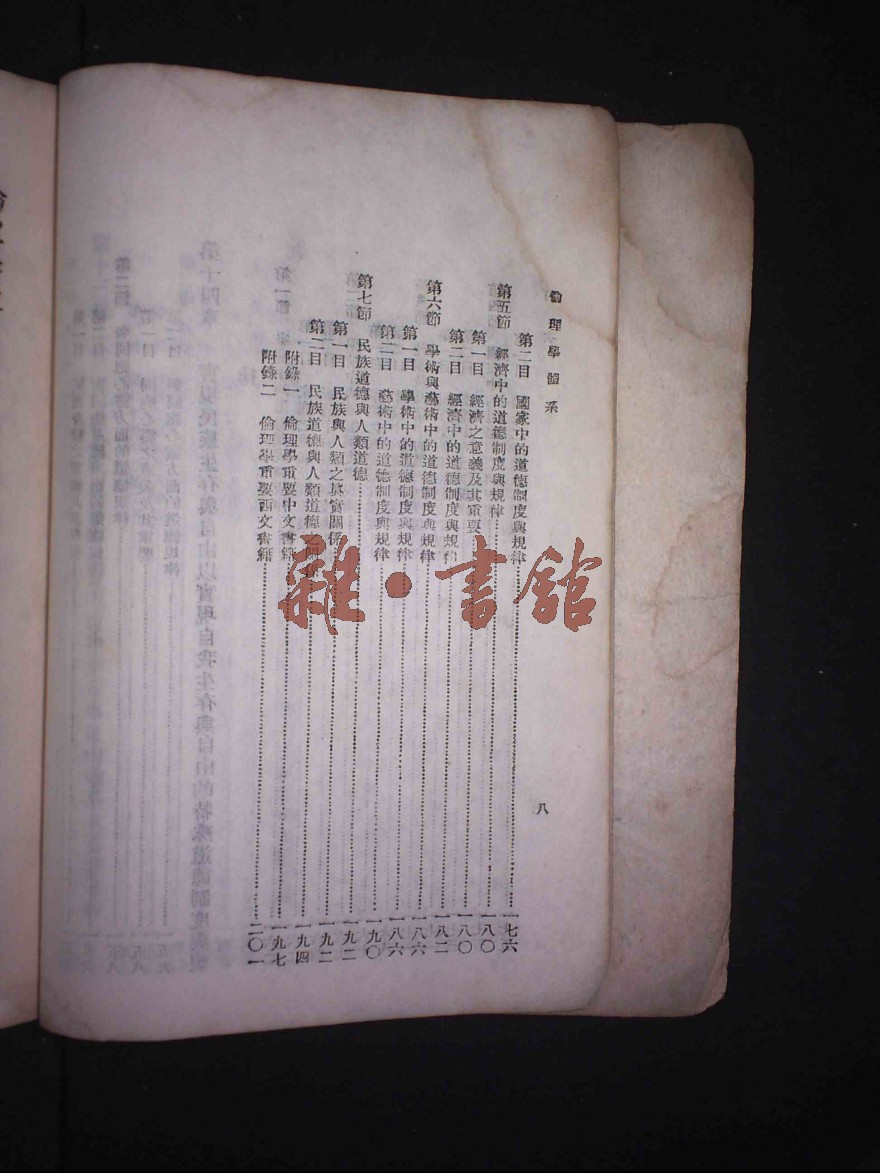 倫理學體系
第二目 國家中的道德制度與規律……一七六
第五節 經濟中的道德制度與規律……一八〇
第一目 經濟之意義及其重要……一八〇
第二目 經濟中的道德制度與規律……一八二
第六節 學術與藝術中的道德制度與規律……一八六
第一目 學術中的道德制度與規律……一八六
第二目 藝術中的道德制度與規律……一九〇
第七節 民族道德與人類道德……一九二
第一目 民族與人類之真實關係……一九二
第二目 民族道德與人類道德之關係……一九四
附錄一 倫理學重要中文書籍……一九七
附錄二 倫理學重要西文書籍……二〇一
八
雜·書館